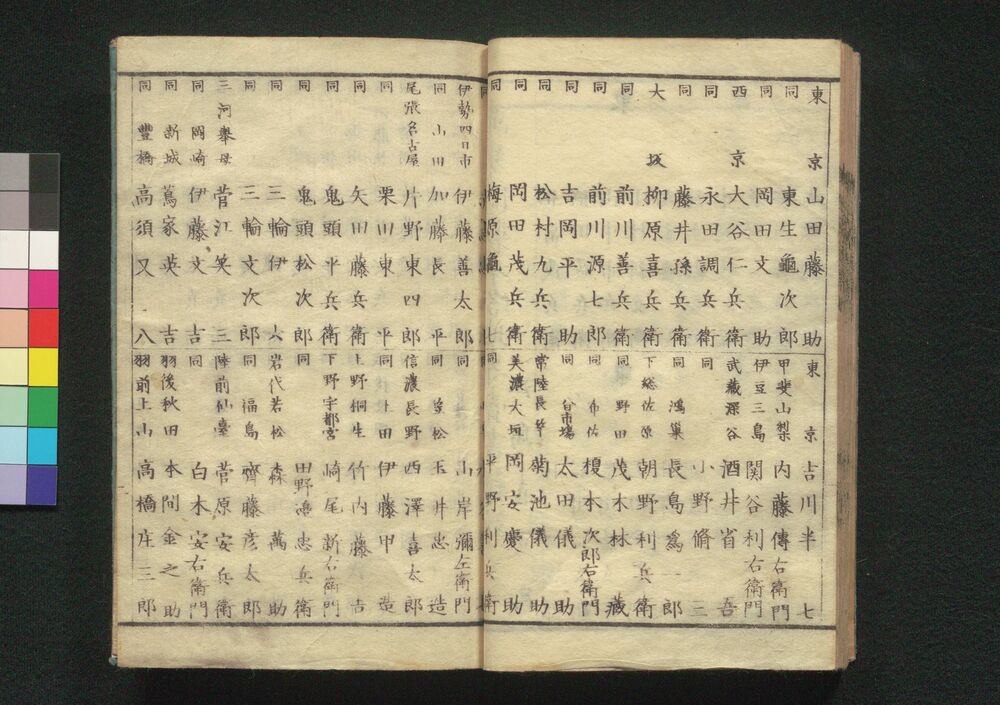 東京 山田藤助
同 東生龜次郎
同 岡田文助
西京 大谷仁兵衛
同 永田調兵衛
同 藤井孫兵衛
大坂 柳原喜兵衛
同 前川善兵衛
同 前川源七郎
同 吉岡平助
同 松村九兵衛
同 岡田茂兵衛
同 梅原龜七
東京 吉川半七
甲斐山梨 内藤傳右衛門
伊豆三島 関谷利右衛門
武蔵深谷 酒井省吾
同 小野脩三
同 鴻巣 長島為一郎
下総佐原 朝野利兵衛
同 野田 茂木林藏
同 布佐 榎本次郎右衛門
同 八日市場 太田儀助
常陸長竿 菊池儀助
美濃大垣 岡安慶助
同 平野利兵衛
伊勢四日市 伊藤善太郎
同 山田 加藤長平
尾張名古屋 片野東四郎
同 栗田東平
同 矢田藤兵衛
同 鬼頭平兵衛
同 鬼頭松次郎
同 三輪伊六
同 三輪文次郎
三河擧母 菅江笑三
同 岡崎 伊藤文吉
同 新城 蔦家英吉
同 豐橋 高須又八
同 山岸彌左衛門
同 笠松 玉井忠造
信濃長野 西澤喜太郎
同 上田 伊藤甲造
上野桐生 竹内藤吉
下野宇都宮 﨑尾新右衛門
同 田野邉忠兵衛
岩代若松 森萬助
同 福島 齊藤彦太郎
陸前仙臺 菅原安兵衛
同 白木安右衛門
羽後秋田 本間金之助
羽前上山 高橋庄三郎